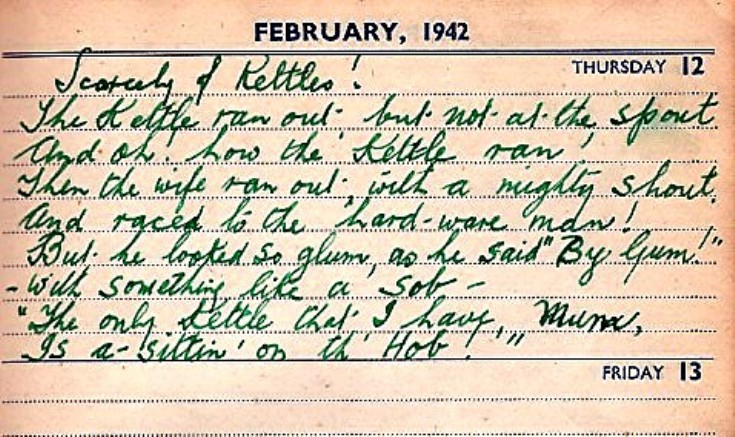 FEBRUARY, 1942
THURSDAY 12
Scarcely of Kettles!
The Kettle ran out but not at the spout
And oh! how the Kettle ran,
Then the wife ran out, with a mighty shout,
And raced to the hard-ware man!
But he looked so glum, as he said "By Gum!"
- With something like a sob -
"The only Kettle that I have, Mum,
Is a-sittin' on th' Hob!"
FRIDAY 13